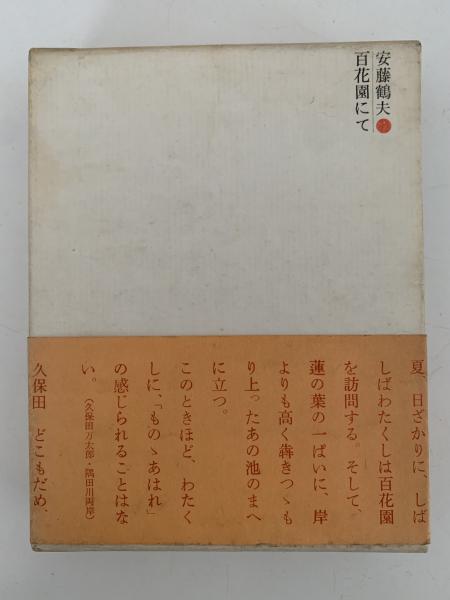 安藤鶴夫
百花園にて
夏、日ざかりに、しば
しばわたくしは百花園
を訪問する。そして、
蓮の葉の一ぱいに、岸
よりも高く犇きつゝも
り上ったあの池のまへ
に立つ。
このときほど、わたく
しに、「ものゝあはれ」
の感じられることはな
い。（久保田万太郎・隅田川両岸）
久保田　どこもだめ、